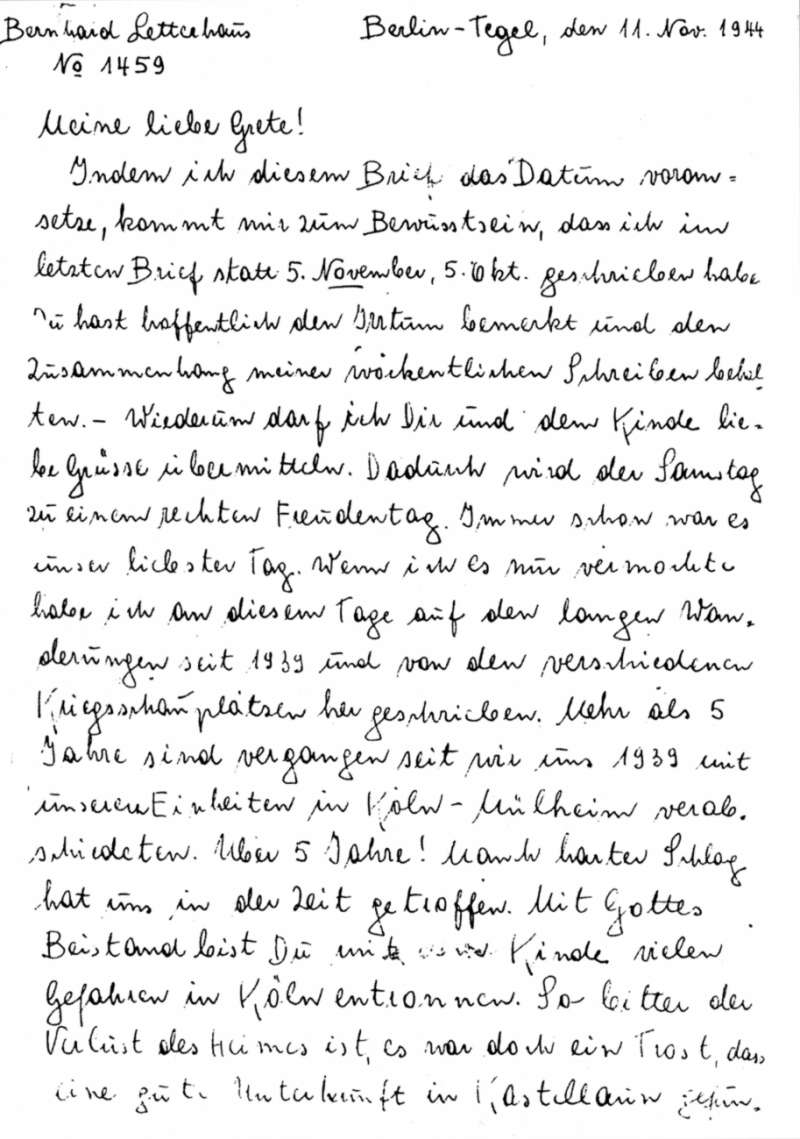 Bernhard Letterhaus Berlin-Tegel, den 11. Nov. 1944
No 1459
Meine liebe Grete!
Indem ich diesem Brief das Datum voran=
setze, kommt mir zum Bewusstsein, dass ich im
letzten Brief statt 5. November, 5. Okt. geschrieben habe
Du hast hoffentlich den Irrtum bemerkt und den
Zusammenhang meiner wöchentlichen Schreiben behal
ten. - Wiederum darf ich Dir und dem Kinde lie-
be Grüsse übermitteln. Dadurch wird der Samstag
zu einem rechten Freudentag. Immer schon war es
unser liebster Tag. Wenn ich es nur vermochte
habe ich an diesem Tage auf den langen Wan-
derungen seit 1939 und von den verschiedenen
Kriegsschauplätzen her geschrieben. Mehr als 5
Jahre sind vergangen seit wir uns 1939 mit
unseren Einheiten in Köln-Mülheim verab-
schiedeten. Über 5 Jahre! Manch harter Schlag
hat uns in der Zeit getroffen. Mit Gottes
Beistand bist Du mit Kinde vielen
Gefahren in Köln entronnen. So bitter der
Verlust des Heimes ist, es war doch ein Trost, dass
eine gute Unterkunft in Kastellaun gefun-